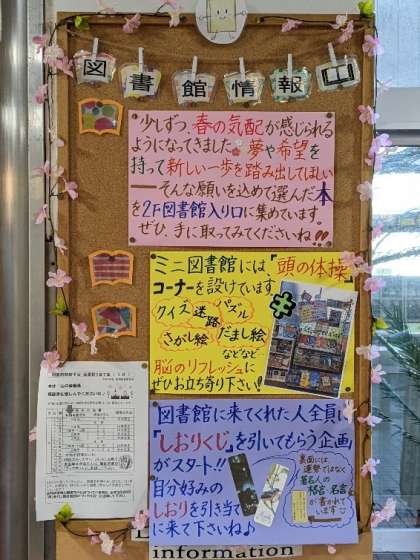 図書館情報
少しずつ、春の気配が感じられる
ようになってきました。夢や希望を
持って新しい一歩を踏み出してほしい
――そんな願いを込めて選んだ本
を2F図書館入り口に集めています。
ぜひ、手に取ってみてくださいね!!
ミニ図書館には、「頭の体操」
コーナーを設けています。
クイズ 迷路 パズル
さがし絵 だまし絵
などなど
脳のリフレッシュに
ぜひお立ち寄り下さい!!
図書館に来てくれた人全員に
「しおりくじ」を引いてもらう企画
がスタート!!
自分好みの
しおりを引き当て
に来て下さいね♪
裏面には
運勢ではなく
著名人の
格言 名言
が書かれて
います
information